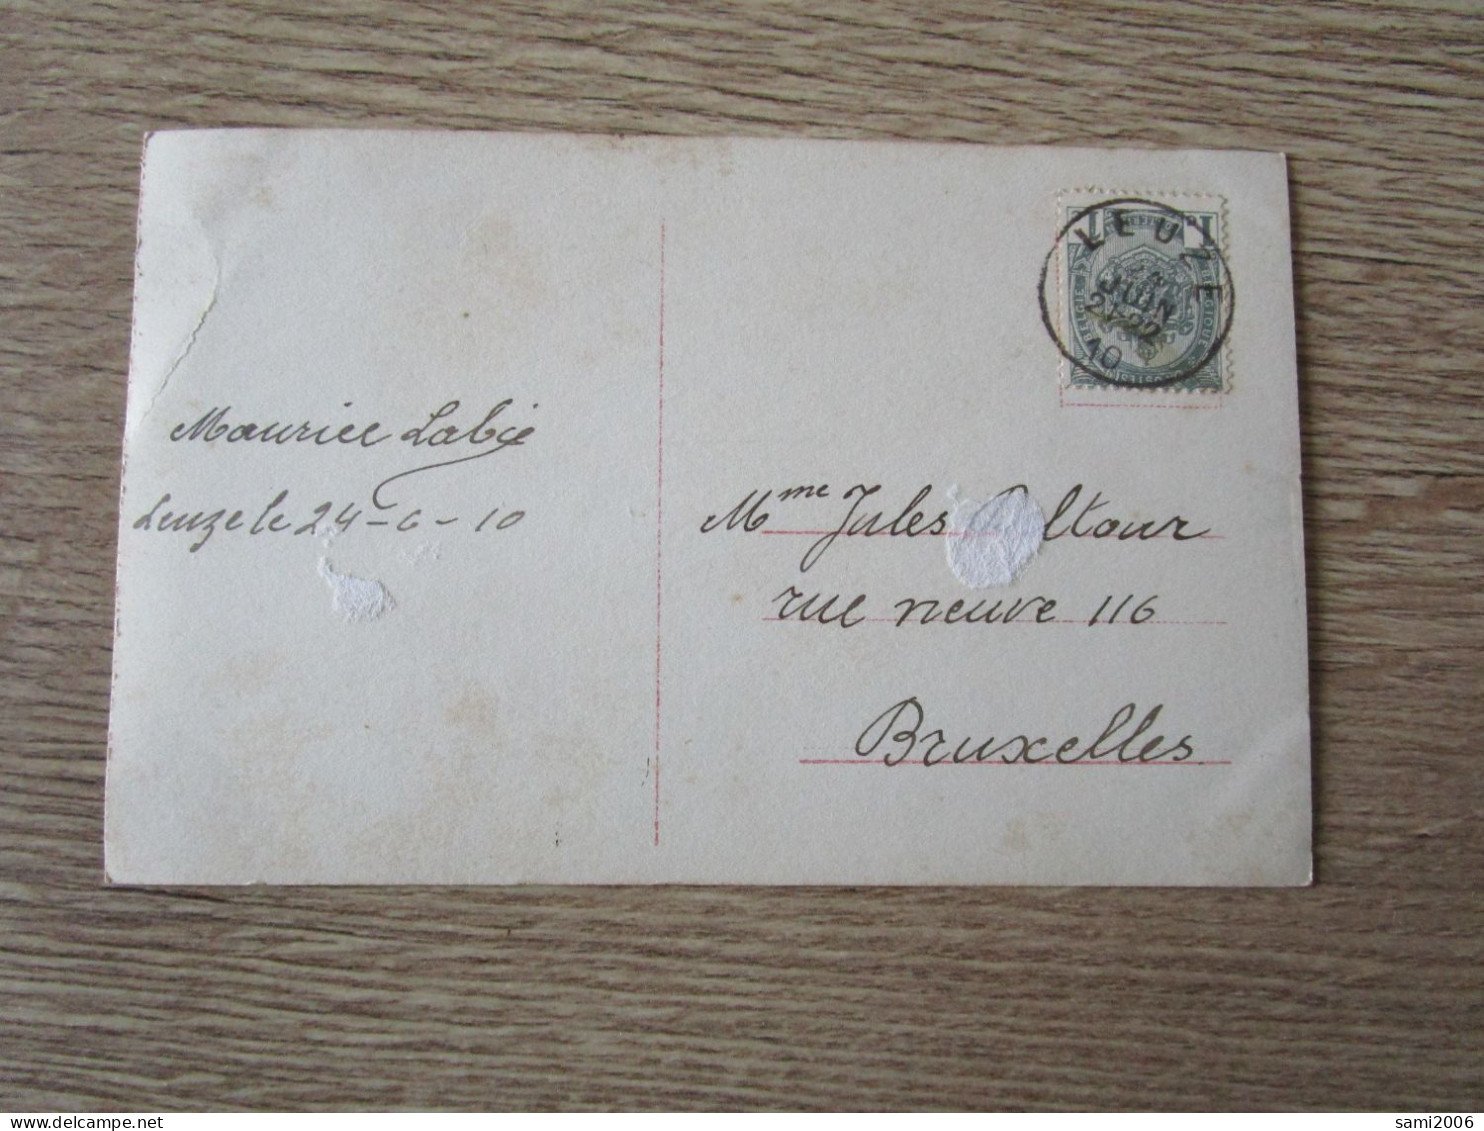 LEUZE
JUIN
21-22
10
Maurice Labie
Leuze le 24-6-10
Mme Jules
rue neuve 116
Bruxelles
delcampe.net
sami2006